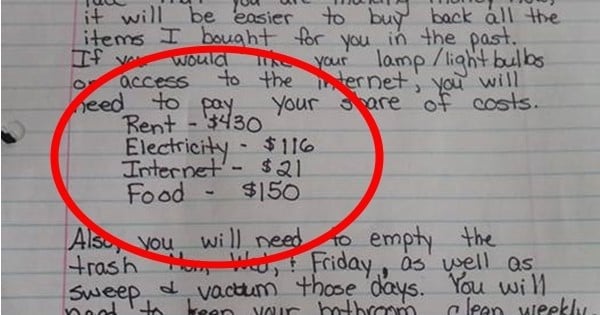 that you are making money now,
it will be easier to buy back all the
items I bought for you in the past.
If you would like your lamp/light bulbs
or access to the internet, you will
need to pay your share of costs.
Rent - $430
Electricity - $116
Internet - $21
Food - $150
Also, you will need to empty the
trash Mon, Wed, & Friday, as well as
sweep & vacuum those days. You will
need to keep your bathroom clean weekly